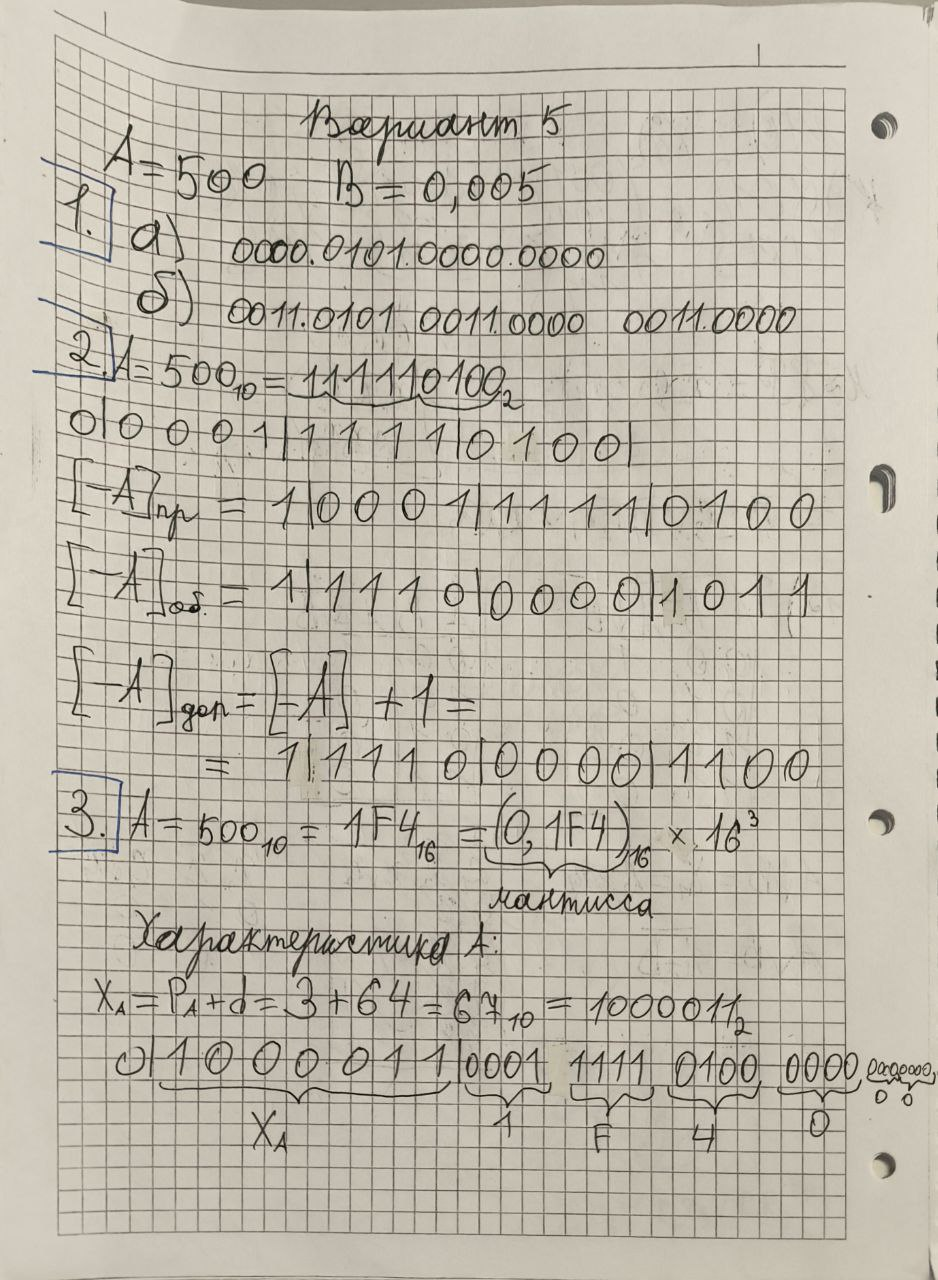 Вариант 5
A = 500 B = 0,005
1. а) 0000.0101.0000.0000
б) 0011.0101 0011.0000 0011.0000
2. A = 500₁₀ = 111110100₂
0|0 0 0 1|1 1 1 1|0 1 0 0|
[-A]пр = 1|0 0 0 1|1 1 1 1|0 1 0 0
[-A]об. = 1|1 1 1 0|0 0 0 0|1 0 1 1
[-A]доп = [-A] + 1 =
= 1|1 1 1 0|0 0 0 0|1 1 0 0
3. A = 500₁₀ = 1F4₁₆ = (0,1F4)₁₆ × 16³
мантисса
Характеристика A:
X_A = P_A + d = 3 + 64 = 67₁₀ = 1000011₂
0|1 0 0 0 0 1 1|0001 1111 0100 0000 00000000
X_A 1 F 4 0 0 0